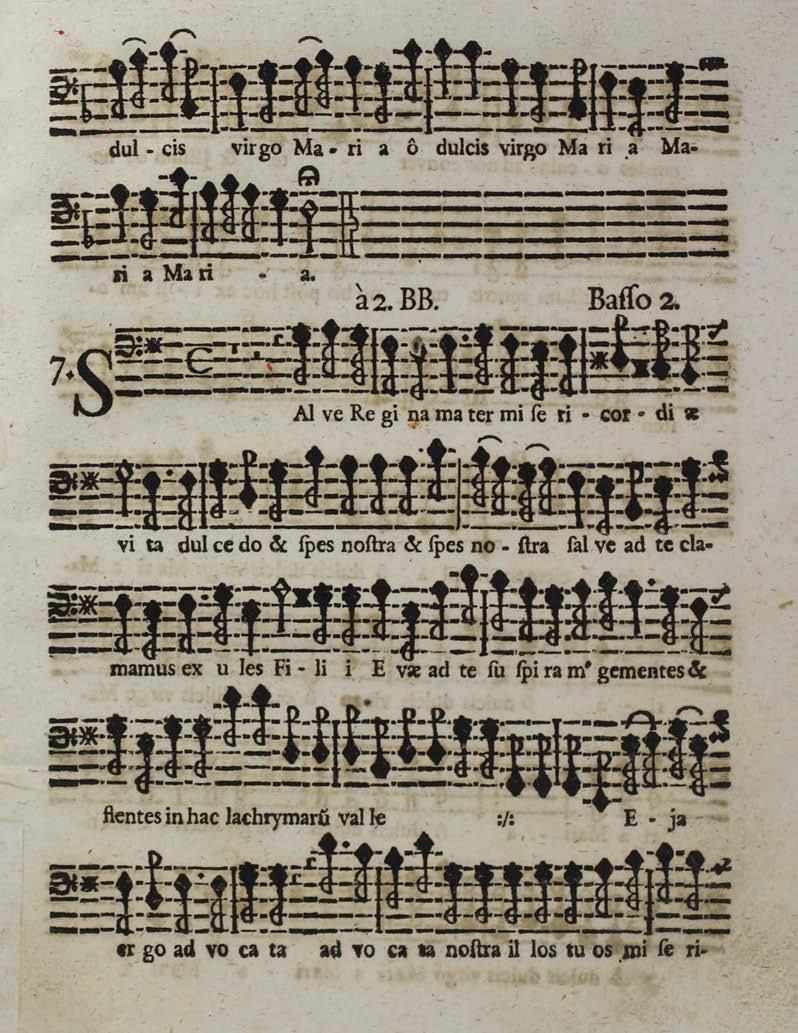 dul - cis virgo Ma - ri a ô dulcis virgo Ma ri a Ma-
ri a Ma ri - a.
à 2. BB. Baſſo 2.
7. S
Al ve Re gi na ma ter mi ſe ri - cor - di æ
vi ta dul ce do & ſpes noſtra & ſpes no - ſtra ſal ve ad te cla-
mamus ex u les Fi - li i E væ ad te ſu ſpi ra m⁹ gementes &
flentes in hac lachrymarũ val le :/: E - ja
er go ad vo ca ta ad vo ca ta noſtra il los tu os mi ſe ri-